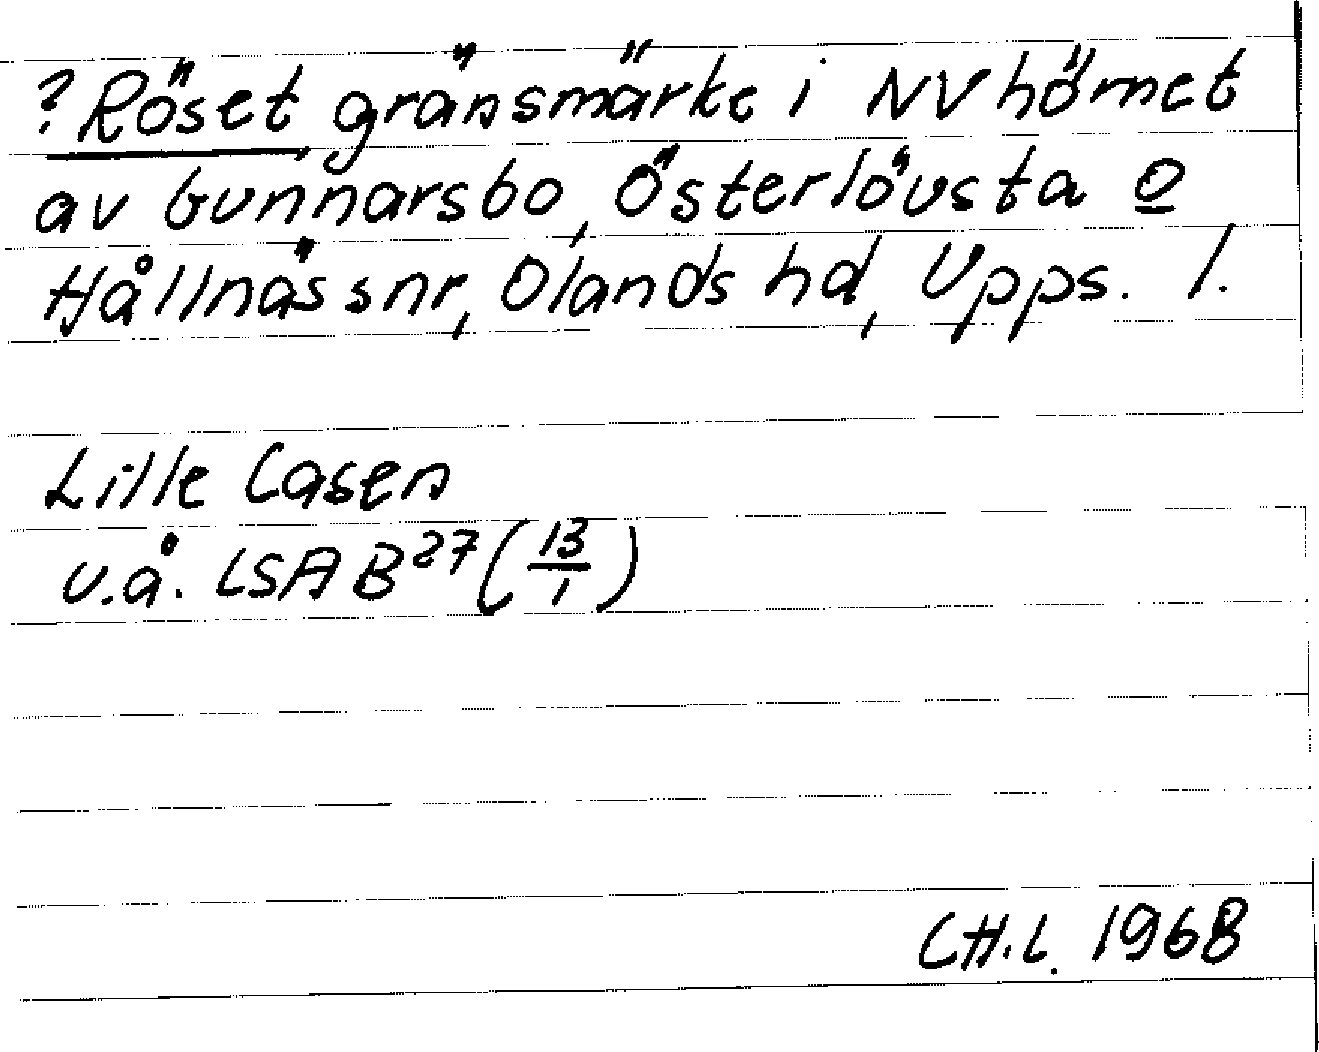 ? Röset, gränsmärke i NV hörnet
av Gunnarsbo, Österlövsta o
Hållnäs snr, Olands hd, Upps. l.
Lille Casen
u.å. LSA B27 (13/1)
CH.L. 1968